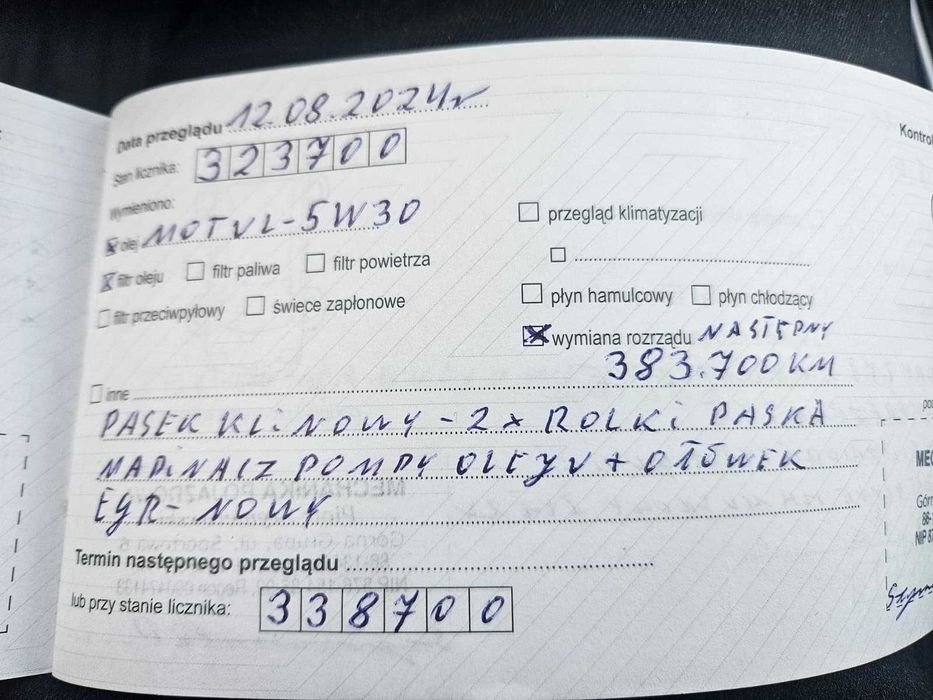 Data przeglądu 12.08.2024r
Stan licznika: 323700
Wymieniono:
olej MOTUL-5W30
filtr oleju filtr paliwa filtr powietrza
filtr przeciwpyłowy świece zapłonowe
przegląd klimatyzacji
płyn hamulcowy płyn chłodzący
wymiana rozrządu NASTĘPNY
383.700KM
inne
PASEK KLiNOWY - 2x ROLKi PASKA
NAPiNACZ POMPY OLEJU + OŁÓWEK
EGR - NOWY
Termin następnego przeglądu
lub przy stanie licznika: 338700
Kontrol
MEC
Górn
86-
NIP 87